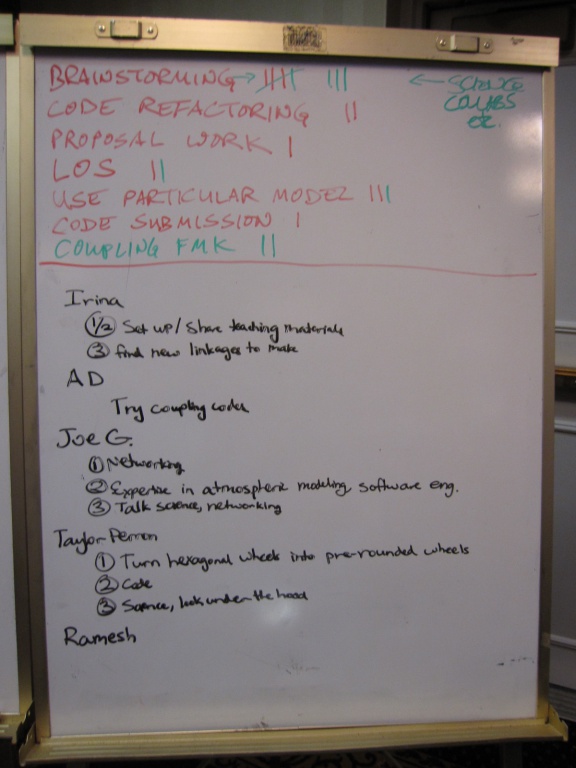 BRAINSTORMING → 卌 ||| ← SCIENCE
CODE REFACTORING || COLLABS
PROPOSAL WORK | etc.
LOS ||
USE PARTICULAR MODEL |||
CODE SUBMISSION |
COUPLING FMK ||
Irina
1/2 Set up/Share teaching materials
3 find new linkages to make
AD
Try coupling codes
Joe G.
1 Networking
2 Expertise in atmospheric modeling, software eng.
3 Talk science, networking
Taylor Perron
1 Turn hexagonal wheels into pre-rounded wheels
2 Code
3 Science, look under the hood
Ramesh